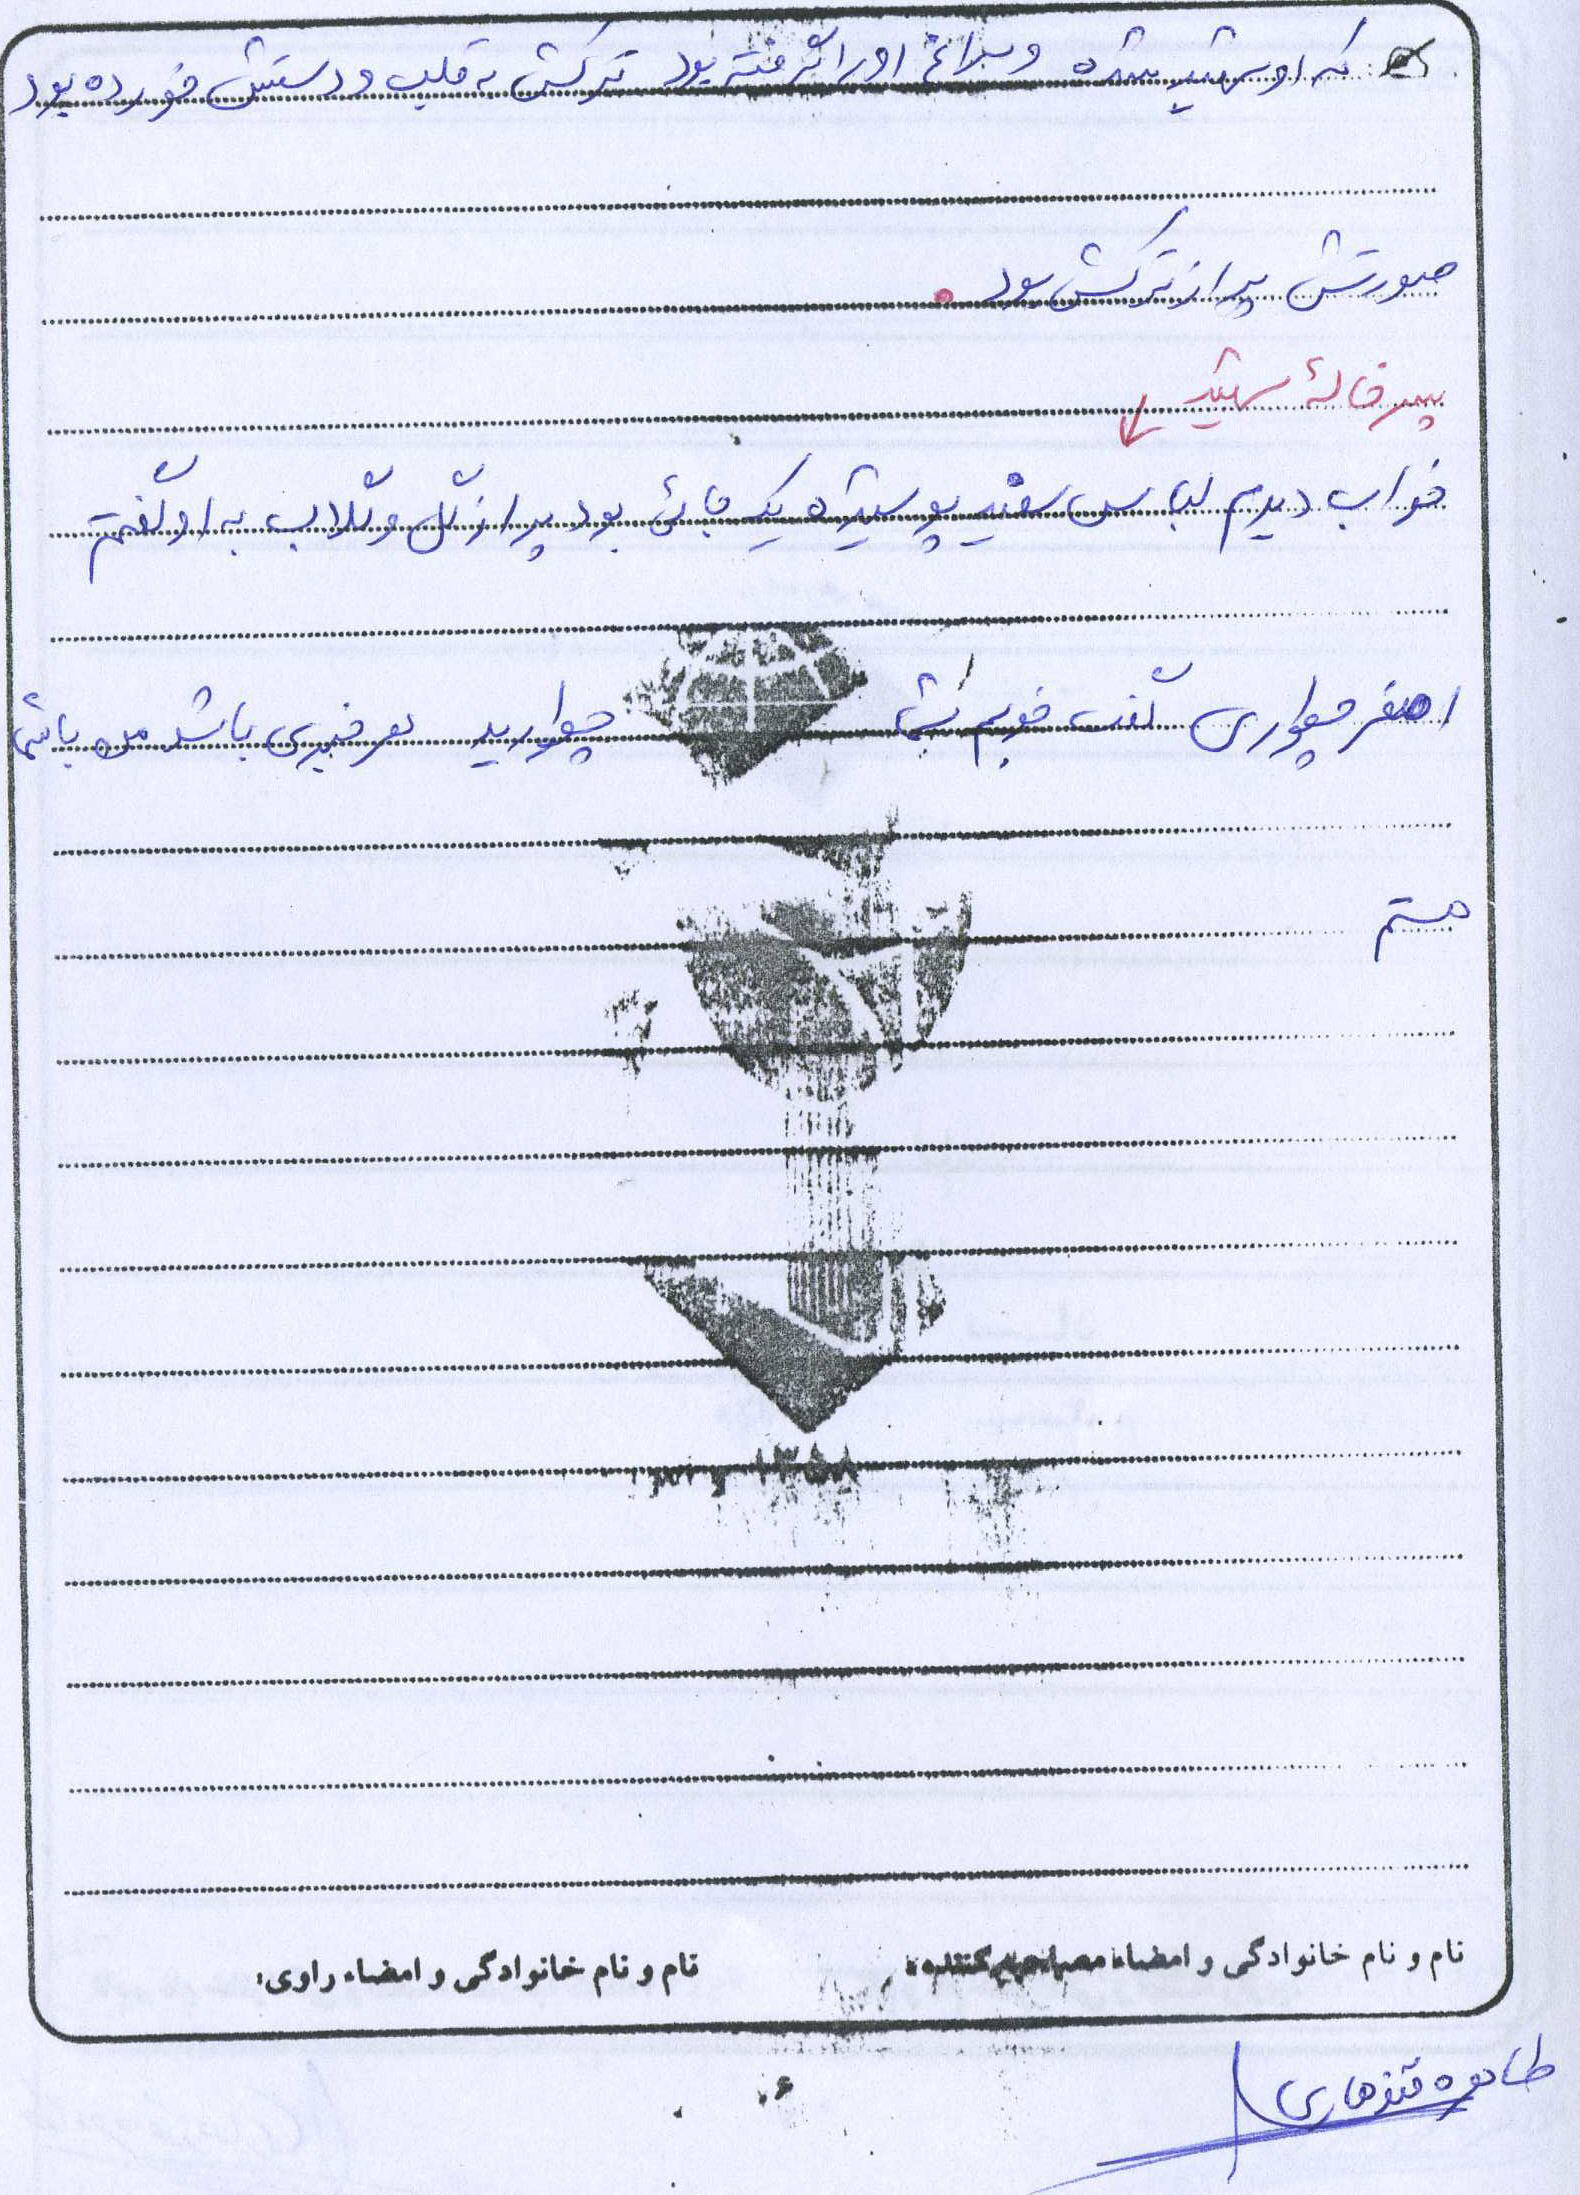 که او شهید شده و سراغ او را گرفته بود ترکش به قلب و دستش خورده بود
صورتش پر از ترکش بود.
پسر خالهٔ شهید
خواب دیدم لباس سفید پوشیده یک جائی بود پر از گل و گلاب به او گفتم
اصغر چطوری گفت خوبم شما چطورید هر خبری باشد من با شما
هستم
۱۳۵۸
نام و نام خانوادگی و امضاء مصاحبه کننده:
نام و نام خانوادگی و امضاء راوی:
۶
طاهره قندهاری